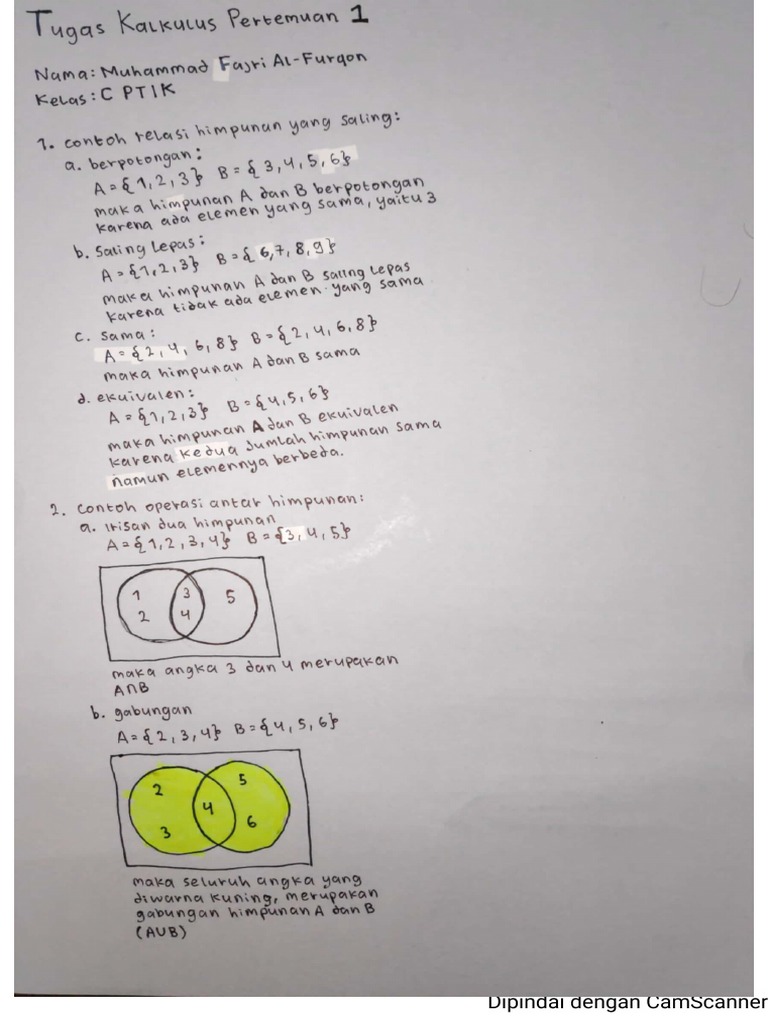 Tugas Kalkulus Pertemuan 1
Nama: Muhammad Fajri Al-Furqon
Kelas: C PTIK
1. contoh relasi himpunan yang saling:
a. berpotongan:
A = {1, 2, 3} B = {3, 4, 5, 6}
maka himpunan A dan B berpotongan
karena ada elemen yang sama, yaitu 3
b. Saling Lepas:
A = {1, 2, 3} B = {6, 7, 8, 9}
maka himpunan A dan B saling lepas
karena tidak ada elemen yang sama
c. Sama:
A = {2, 4, 6, 8} B = {2, 4, 6, 8}
maka himpunan A dan B sama
d. ekuivalen:
A = {1, 2, 3} B = {4, 5, 6}
maka himpunan A dan B ekuivalen
karena kedua jumlah himpunan sama
namun elemennya berbeda.
2. Contoh operasi antar himpunan:
a. irisan dua himpunan
A = {1, 2, 3, 4} B = {3, 4, 5}
1 3 5
2 4
maka angka 3 dan 4 merupakan
A∩B
b. gabungan
A = {2, 3, 4} B = {4, 5, 6}
2 5
4
3 6
maka seluruh angka yang
diwarna kuning, merupakan
gabungan himpunan A dan B
(AUB)
Dipindai dengan CamScanner